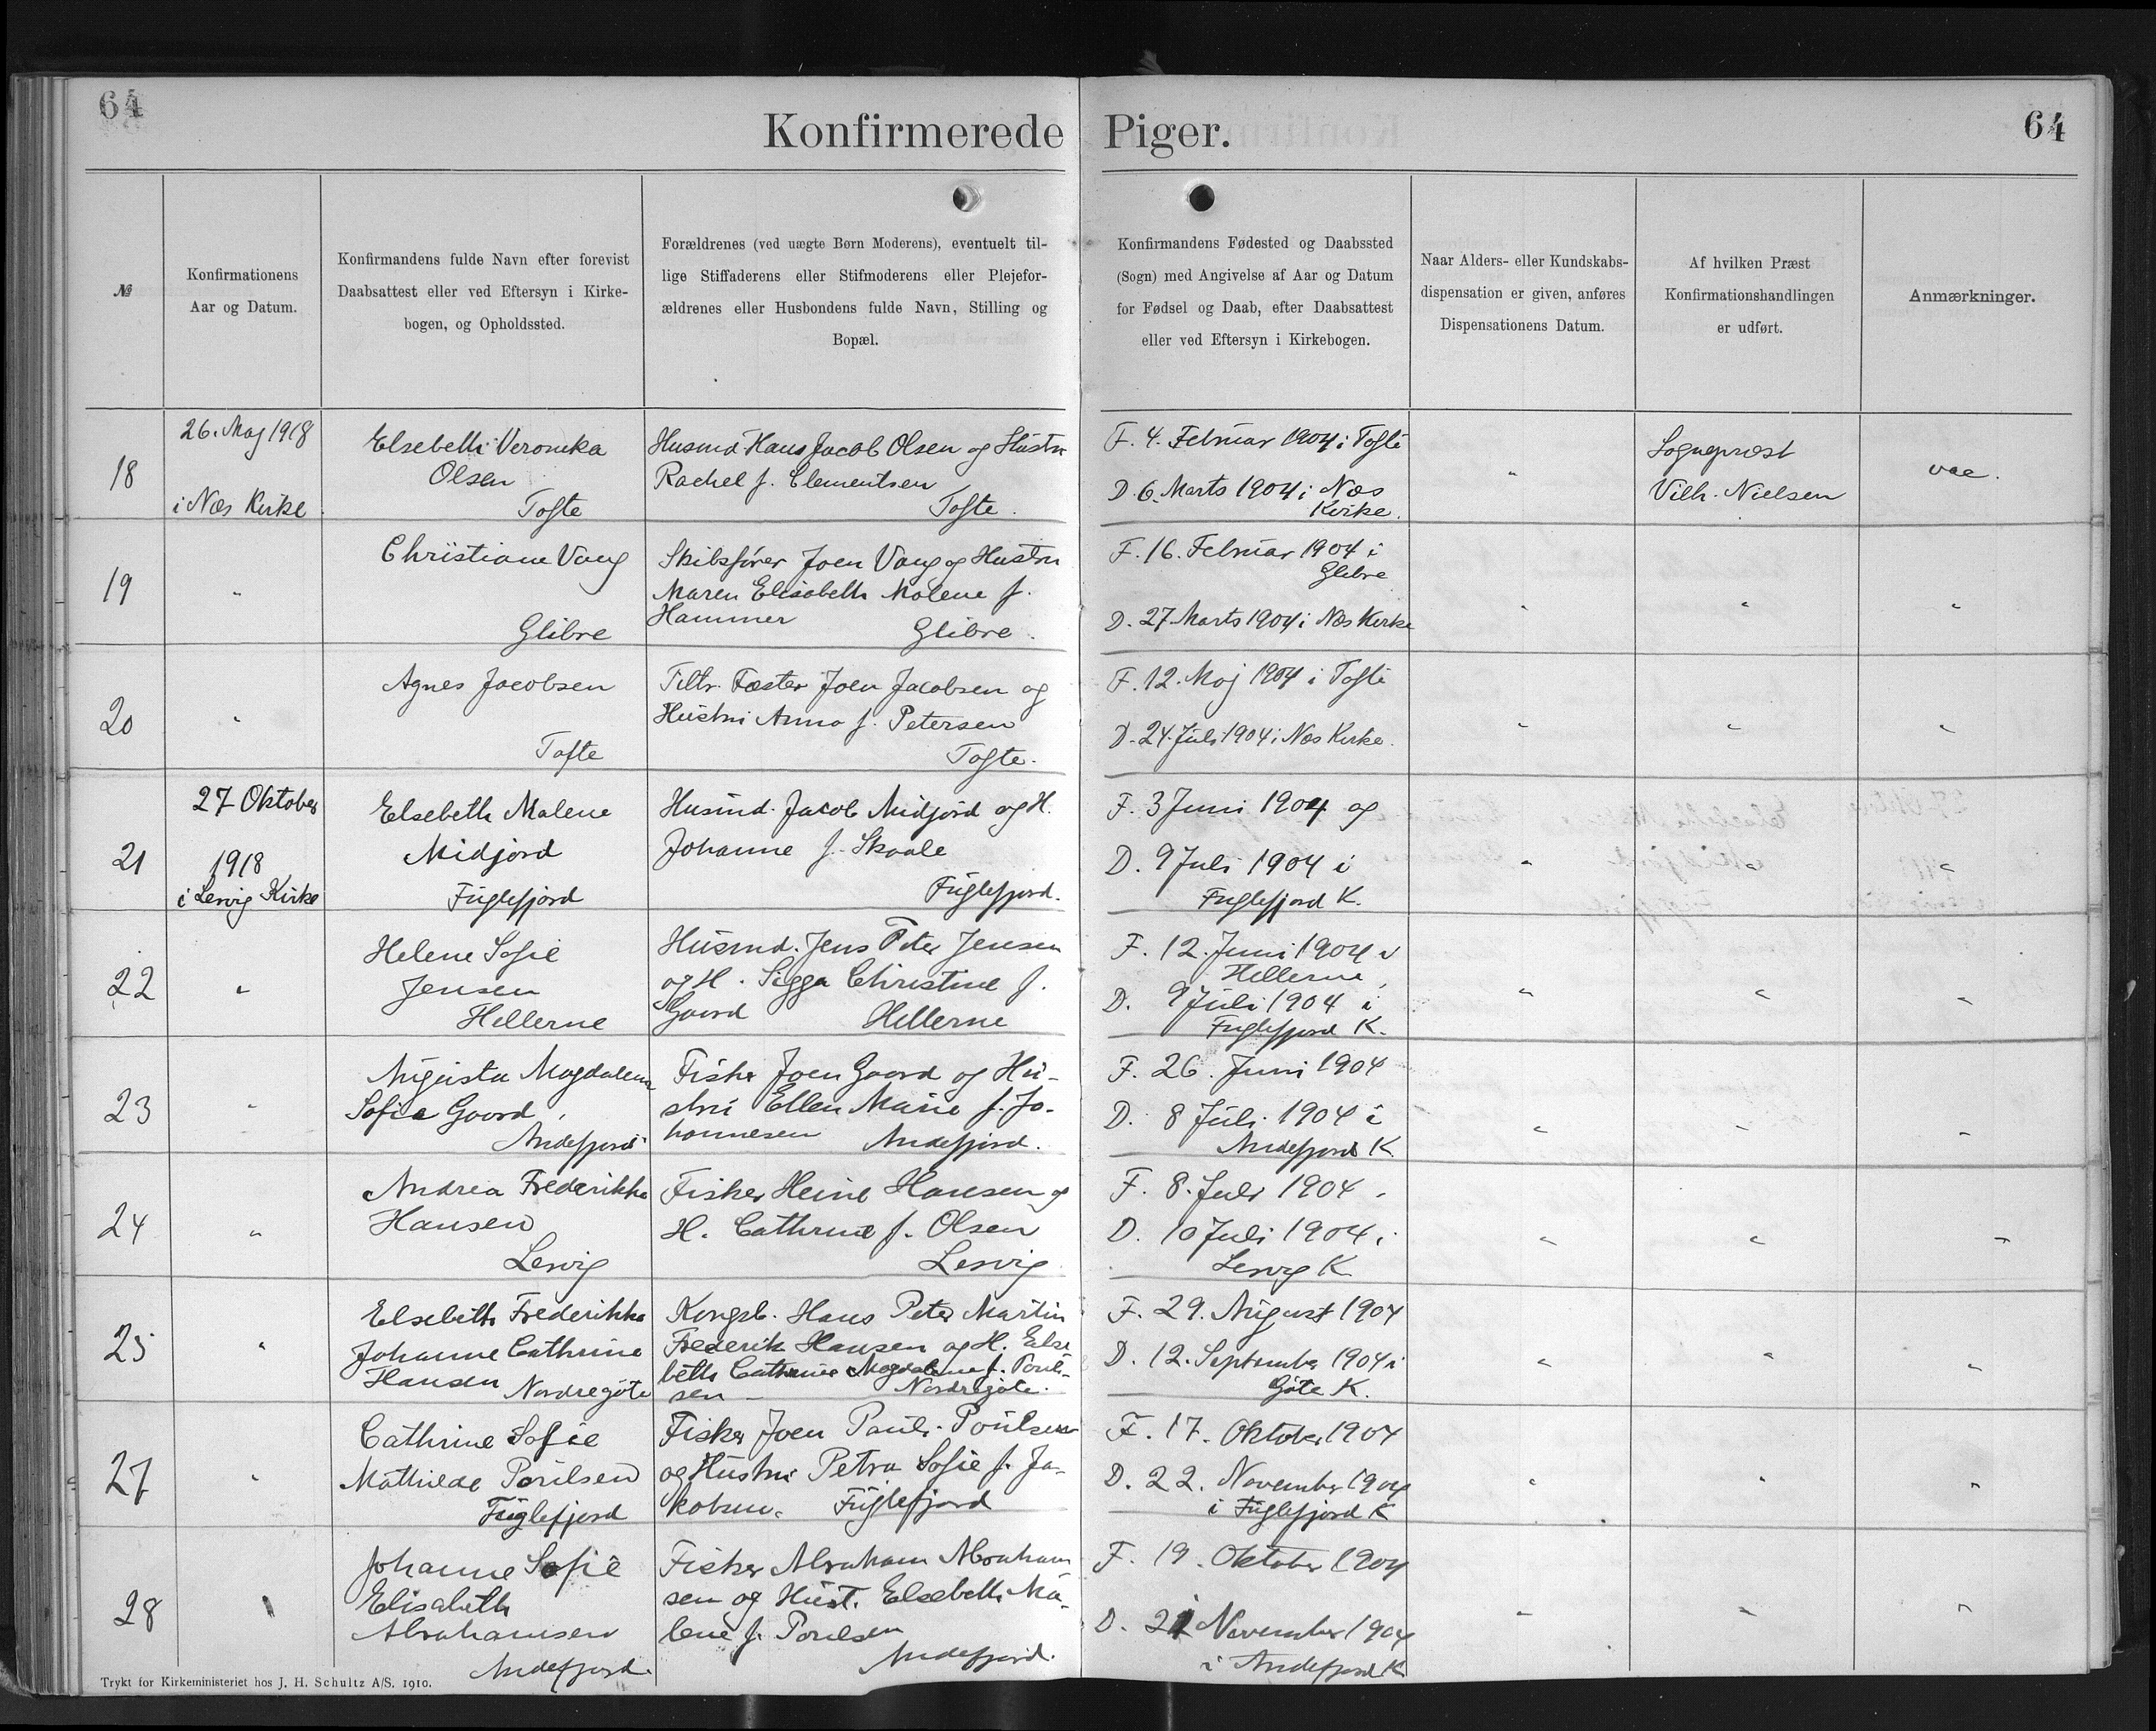 64
Konfirmerede Piger.
64
№
Konfirmationens
Aar og Datum.
Konfirmandens fulde Navn efter forevist
Daabsattest eller ved Eftersyn i Kirke-
bogen, og Opholdssted.
Forældrenes (ved uægte Børn Moderens), eventuelt til-
lige Stiffaderens eller Stifmoderens eller Plejefor-
ældrenes eller Husbondens fulde Navn, Stilling og
Bopæl.
Konfirmandens Fødested og Daabssted
(Sogn) med Angivelse af Aar og Datum
for Fødsel og Daab, efter Daabsattest
eller ved Eftersyn i Kirkebogen.
Naar Alders- eller Kundskabs-
dispensation er given, anføres
Dispensationens Datum.
Af hvilken Præst
Konfirmationshandlingen
er udført.
Anmærkninger.
18
26. Maj 1918
i Næs Kirke
Elsebeth Veronika
Olsen
Tofte
Husmd Hans Jacob Olsen og Hustru
Rachel f. Clementsen
Tofte.
F. 4. Februar 1904 i Tofte
D. 6. Marts 1904 i Næs
Kirke.
"
Sognepræst
Vilh. Nielsen
vac.
19
"
Christiane Vang
Glibre
Skibsfører Joen Vang og Hustru
Maren Elisabeth Malene f.
Hammer
Glibre.
F. 16. Februar 1904 i
Glibre
D. 27 Marts 1904 i Næs Kirke
"
"
"
20
"
Agnes Jacobsen
Tofte
Fæster Joen Jacobsen og
Hustru Anna f. Petersen
Tofte.
F. 12. Maj 1904 i Tofte
D. 24. Juli 1904 i Næs Kirke.
"
"
"
21
27 Oktober
1918
i Lervig Kirke
Elsebeth Malene
Midjord
Fuglefjord
Husmd. Jacob Midjord og H.
Johanne f. Skaale
Fuglefjord.
F. 3 Juni 1904 og
D. 9 Juli 1904 i
Fuglefjord K.
"
"
"
22
"
Helene Sofie
Jensen
Hellerne
Husmd. Jens Peter Jensen
og H. Sigga Christine f.
Gaard
Hellerne
F. 12. Juni 1904 i
Hellerne,
D. 9 Juli 1904 i
Fuglefjord K.
"
"
"
23
"
Augusta Magdalena
Sofie Gaard,
Andefjord
Fisker Joen Gaard og Hu-
stru Ellen Marie f. Jo-
hannesen Andefjord.
F. 26. Juni 1904
D. 8 Juli 1904 i
Andefjord K
"
"
"
24
"
Andrea Frederikke
Hansen
Lervig
Fisker Heine Hansen og
H. Cathrine f. Olsen
Lervig
F. 8. Juli 1904.
D. 10 Juli 1904 i
Lervig K
"
"
"
25
"
Elsebeth Frederikke
Johanne Cathrine
Hansen Nordregøte
Kongsb. Hans Peter Martin
Frederik Hansen og H. Else
beth Cathrine Magdalene f. Poul-
sen - Nordregøte.
F. 29. August 1904
D. 12. September 1904 i
Gøte K.
"
"
"
27
"
Cathrine Sofie
Mathilde Poulsen
Fuglefjord
Fisker Joen Pauli Poulsen
og Hustru Petra Sofie f. Ja-
kobsen. Fuglefjord
F. 17. Oktober 1904
D. 22. November 1904
i Fuglefjord K
"
"
"
28
"
Johanne Sofie
Elisabeth
Abrahamsen
Andefjord.
Fisker Abraham Abraham
sen og Hust. Elsebeth Ma-
lene f. Poulsen
Andefjord.
F. 19. Oktober 1904
D. 21 November 1904
i Andefjord K
"
"
"
Trykt for Kirkeministeriet hos J. H. Schultz A/S. 1910.